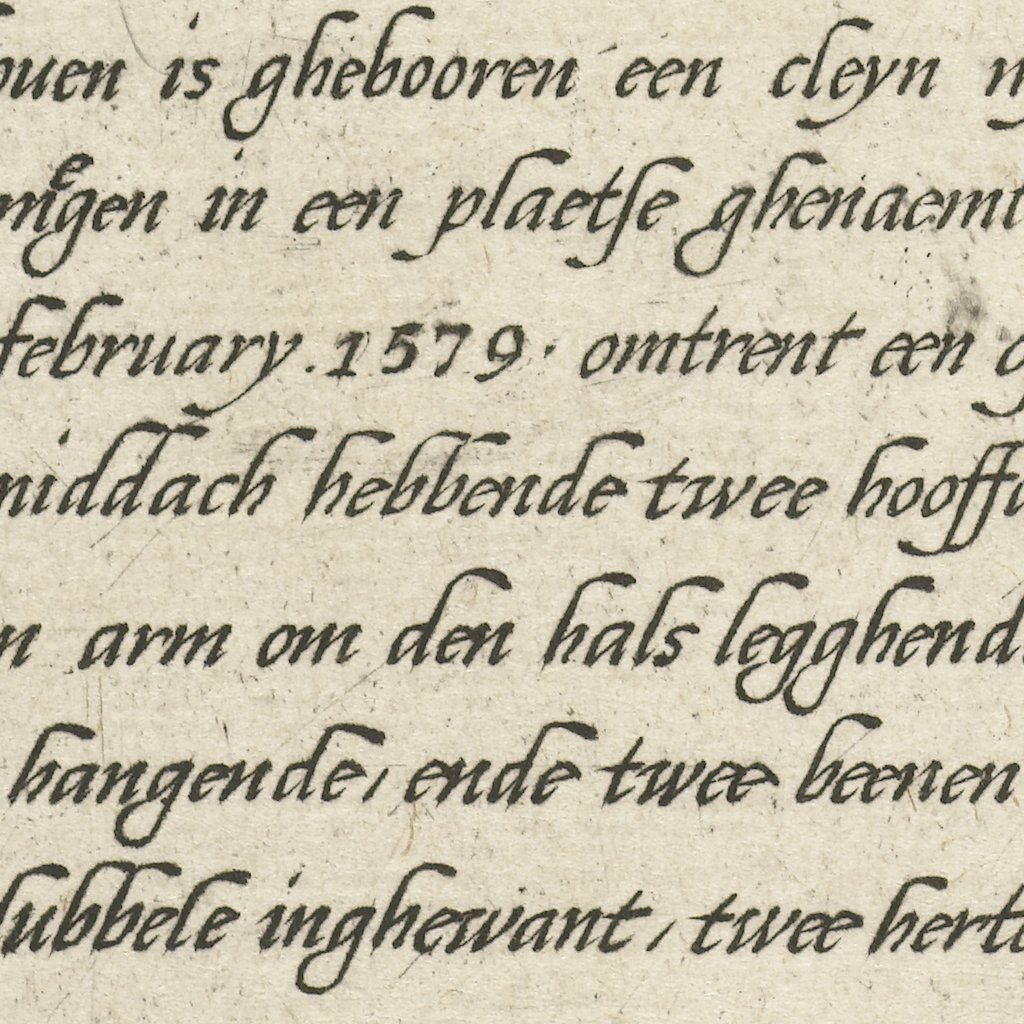 ouen is ghebooren een cleyn m
mͤgen in een plaetſe ghenaemt
february . 1579 . omtrent een g
middach hebbende twee hooffd
n arm om den hals legghend
hangende, ende twee beenen
dubbele inghewant, twee herte